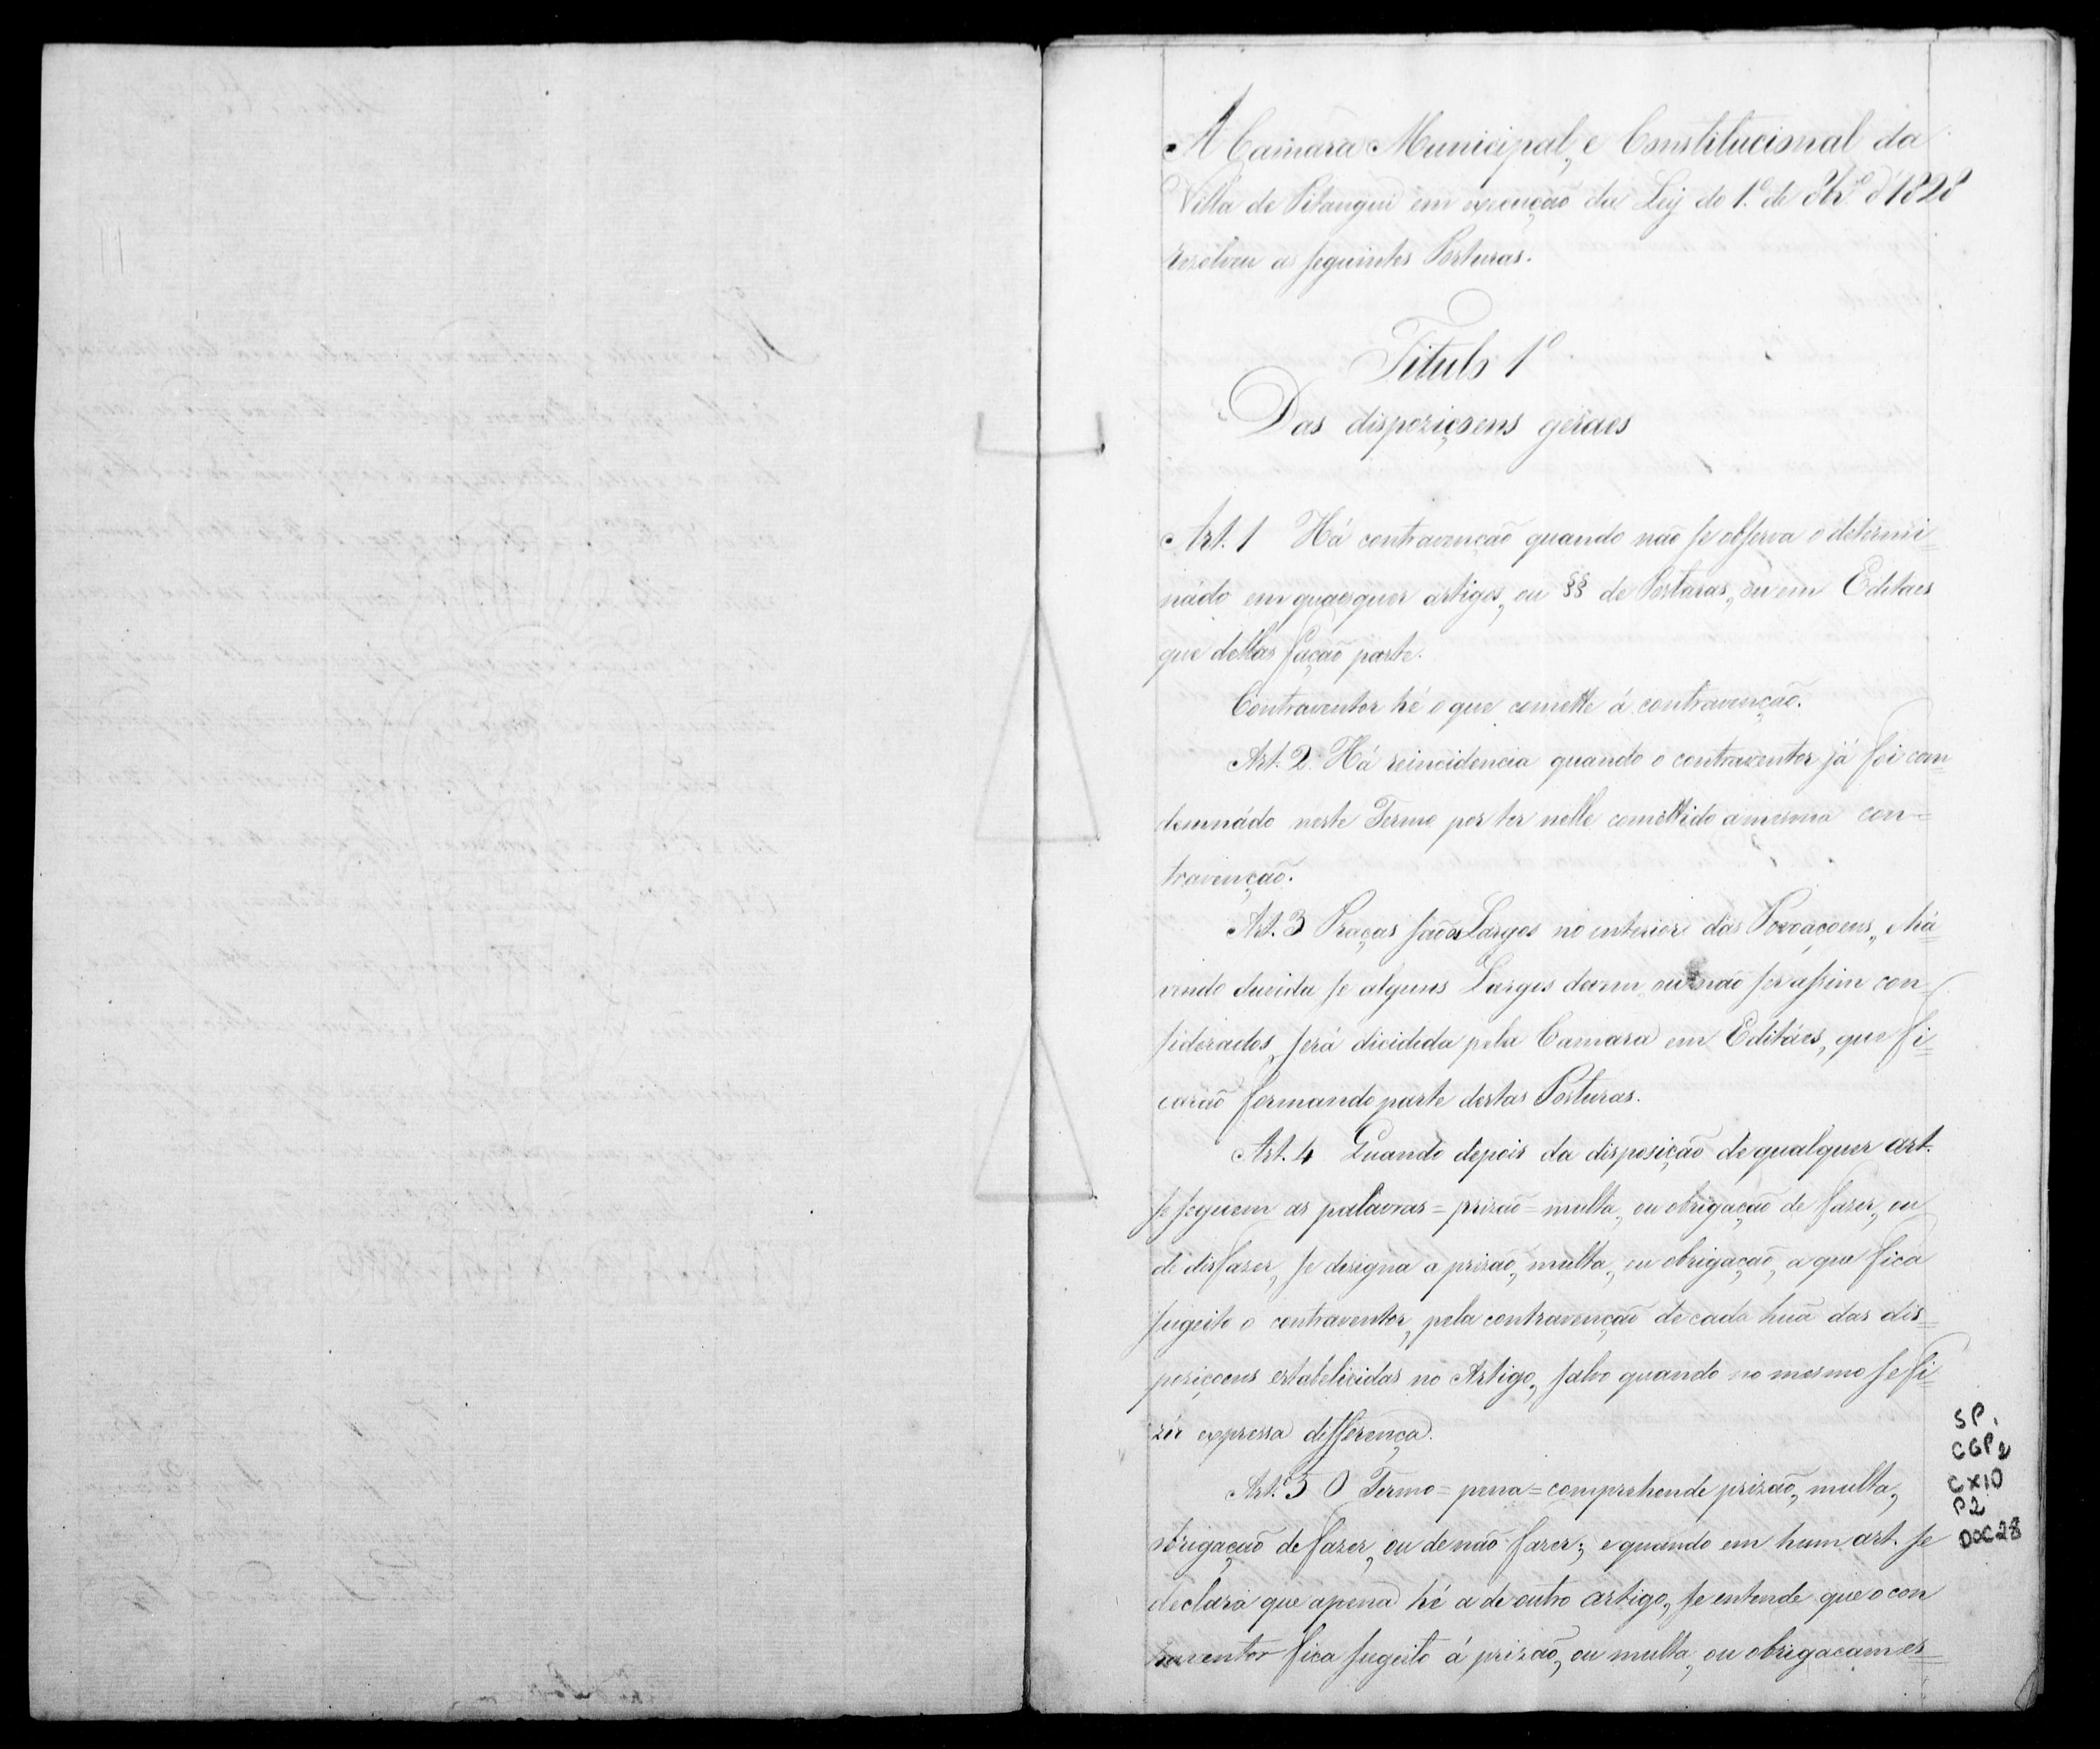 A Camara Municipal, e Constitucional da
Villa de Pitangui em execução da Ley do 1.º de 8br.º d'1828
rezolveu as seguintes Posturas.
Titulo 1º
Das dispoziçoens geraes
Art. 1 Há contravenção quando não se observa o determi=
nádo em quaesquer artigos, ou §§ de Posturas, ou em Editaes
que dellas fação parte.
Contraventor hé o que comette á contravenção.
Art. 2. Há reincidencia quando o contraventor já foi com=
demnádo neste Termo por ter nelle comettido a mesma con=
travenção.
Art. 3 Praças são os Largos no interior das Povoaçoens, Há=
vendo duvida se alguns Largos devem ou não ser assim con=
siderados, será dicidida pela Camara em Editáes, que fi=
carão formando parte destas Posturas.
Art. 4 Quando depois da disposição de qualquer art.
se seguem as palavras = prizão = multa, ou obrigação de fazer, ou
de disfazer, se designa a prizão, multa, ou obrigação, a que fica
sugeito o contraventor, pela contravenção de cada huã das dis=
poziçoens estabelicidas no Artigo, salvo quando no mesmo se fi=
zér expressa differença.
Art. 5 O Termo = pena = comprehende prizão, multa,
obrigação de fazer, ou de não fazer; e quando em hum art. se
declara que a pena hé a de outro artigo, se entende que o con
traventor fica sugeito á prizão, ou multa, ou obrigacam es=
SP.
CGP2
CX10
P2
DOC28